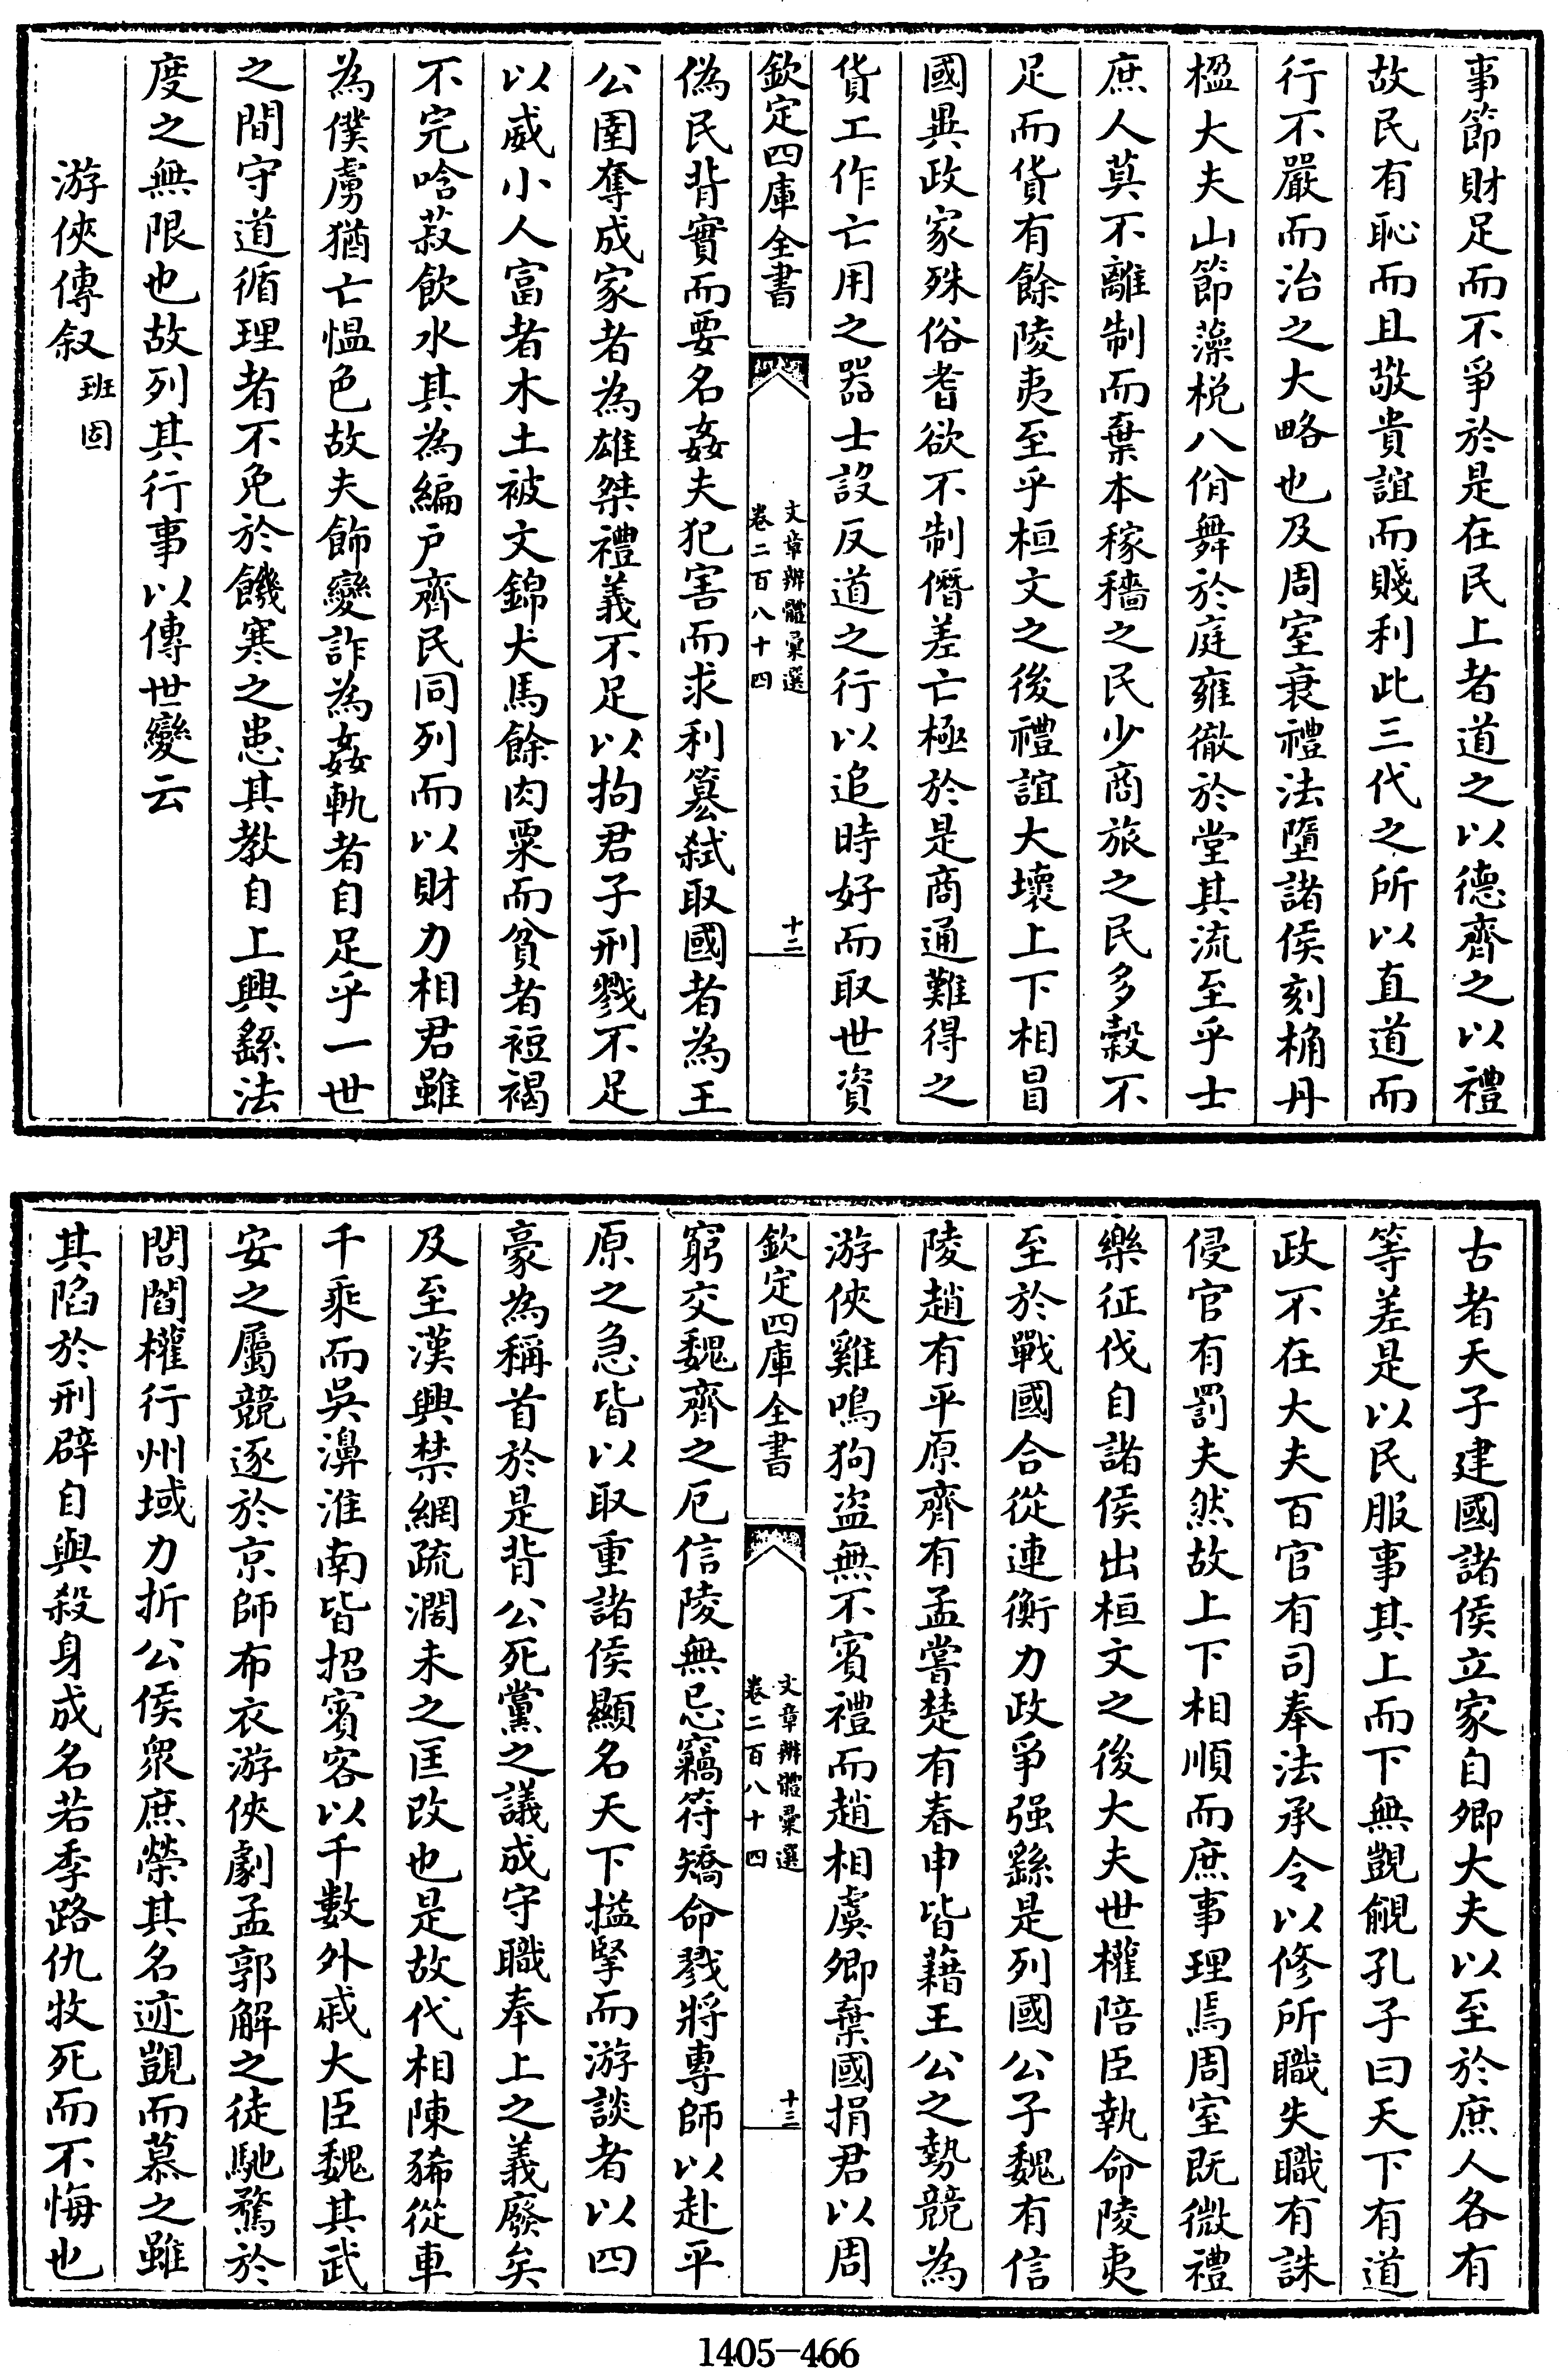 事節財足而不爭於是在民上者道之以德齊之以禮
故民有恥而且敬貴誼而賤利此三代之所以直道而
行不嚴而治之大略也及周室衰禮法墮諸侯刻桷丹
楹大夫山節藻梲八佾舞於庭雍徹於堂其流至乎士
庶人莫不離制而棄本稼穡之民少商旅之民多穀不
足而貨有餘陵夷至乎桓文之後禮誼大壞上下相冒
國異政家殊俗耆欲不制僭差亡極於是商通難得之
貨工作亡用之器士設反道之行以追時好而取世資
欽定四庫全書
文章辨體彙選
卷二百八十四
十二
偽民背實而要名姦夫犯害而求利簒弑取國者為王
公圉奪成家者為雄桀禮義不足以拘君子刑戮不足
以威小人富者木土被文錦犬馬餘肉粟而貧者裋褐
不完唅菽飲水其為編户齊民同列而以財力相君雖
為僕虜猶亡愠色故夫飾變詐為姦軌者自足乎一世
之間守道循理者不免於饑寒之患其教自上興繇法
度之無限也故列其行事以傳世變云
游俠傳叙 班固
古者天子建國諸侯立家自卿大夫以至於庶人各有
等差是以民服事其上而下無覬覦孔子曰天下有道
政不在大夫百官有司奉法承令以修所職失職有誅
侵官有罰夫然故上下相順而庶事理焉周室既微禮
樂征伐自諸侯出桓文之後大夫世權陪臣執命陵夷
至於戰國合從連衡力政爭强繇是列國公子魏有信
陵趙有平原齊有孟嘗楚有春申皆藉王公之勢競為
游俠雞鳴狗盜無不賓禮而趙相虞卿棄國捐君以周
欽定四庫全書
文章辨體彙選
卷二百八十四
十三
窮交魏齊之厄信陵無忌竊符矯命戮將專師以赴平
原之急皆以取重諸侯顯名天下搤掔而游談者以四
豪為稱首於是背公死黨之議成守職奉上之義廢矣
及至漢興禁網疏濶未之匡改也是故代相陳豨從車
千乘而吳濞淮南皆招賓客以千數外戚大臣魏其武
安之屬競逐於京師布衣游俠劇孟郭解之徒馳騖於
閭閻權行州域力折公侯衆庶榮其名迹覬而慕之雖
其陷於刑辟自與殺身成名若季路仇牧死而不悔也
1405-466